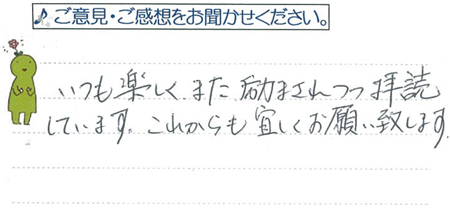 ご意見・ご感想をお聞かせください。
いつも楽しく、また励まされつつ拝読
しています。これからも宜しくお願い致します。